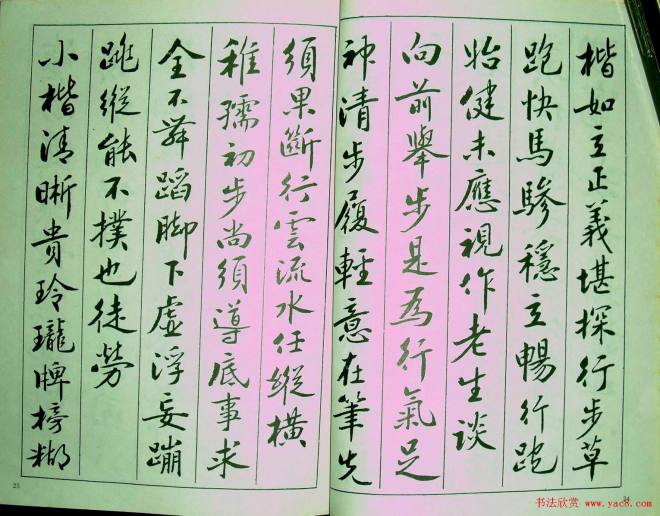 楷如立正義堪探行步草
跑快馬驂穩立暢行跑
始健未應視作老生談
向前舉步是為行氣足
神清步履輕意在筆先
須果斷行雲流水任縱橫
稚孺初步尚須導底事求
全不舞蹈脚下虛浮妄蹦
跳縱能不撲也徒勞
小楷清晰貴玲瓏牌榜糊
24
25
书法欣赏 www.yac8.com